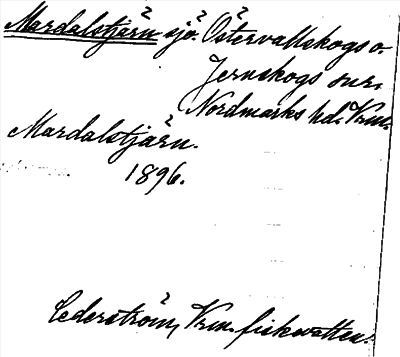 Mardalstjärn sjö. Östervallskogs o.
Jernskogs snr.
Nordmarks hd. Vrm.
Mardalstjärn.
1896.
Cederström, Vrm. fiskvatten.